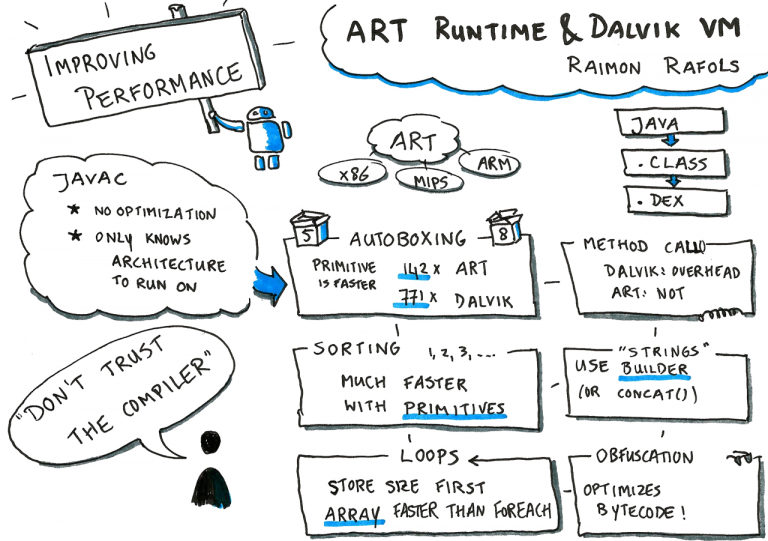 IMPROVING
PERFORMANCE
ART RUNTIME & DALVIK VM
RAIMON RAFOLS
JAVA
.CLASS
.DEX
ART
X86
MIPS
ARM
JAVAC
* NO OPTIMIZATION
* ONLY KNOWS
ARCHITECTURE
TO RUN ON
5
8
AUTOBOXING
PRIMITIVE
IS FASTER
142x ART
771x DALVIK
METHOD CALL
DALVIK: OVERHEAD
ART: NOT
SORTING 1, 2, 3, ...
MUCH FASTER
WITH PRIMITIVES
"STRINGS"
USE BUILDER
(OR CONCAT())
"DON'T TRUST
THE COMPILER"
LOOPS
STORE SIZE FIRST
ARRAY FASTER THAN FOREACH
OBFUSCATION
OPTIMIZES
BYTECODE!